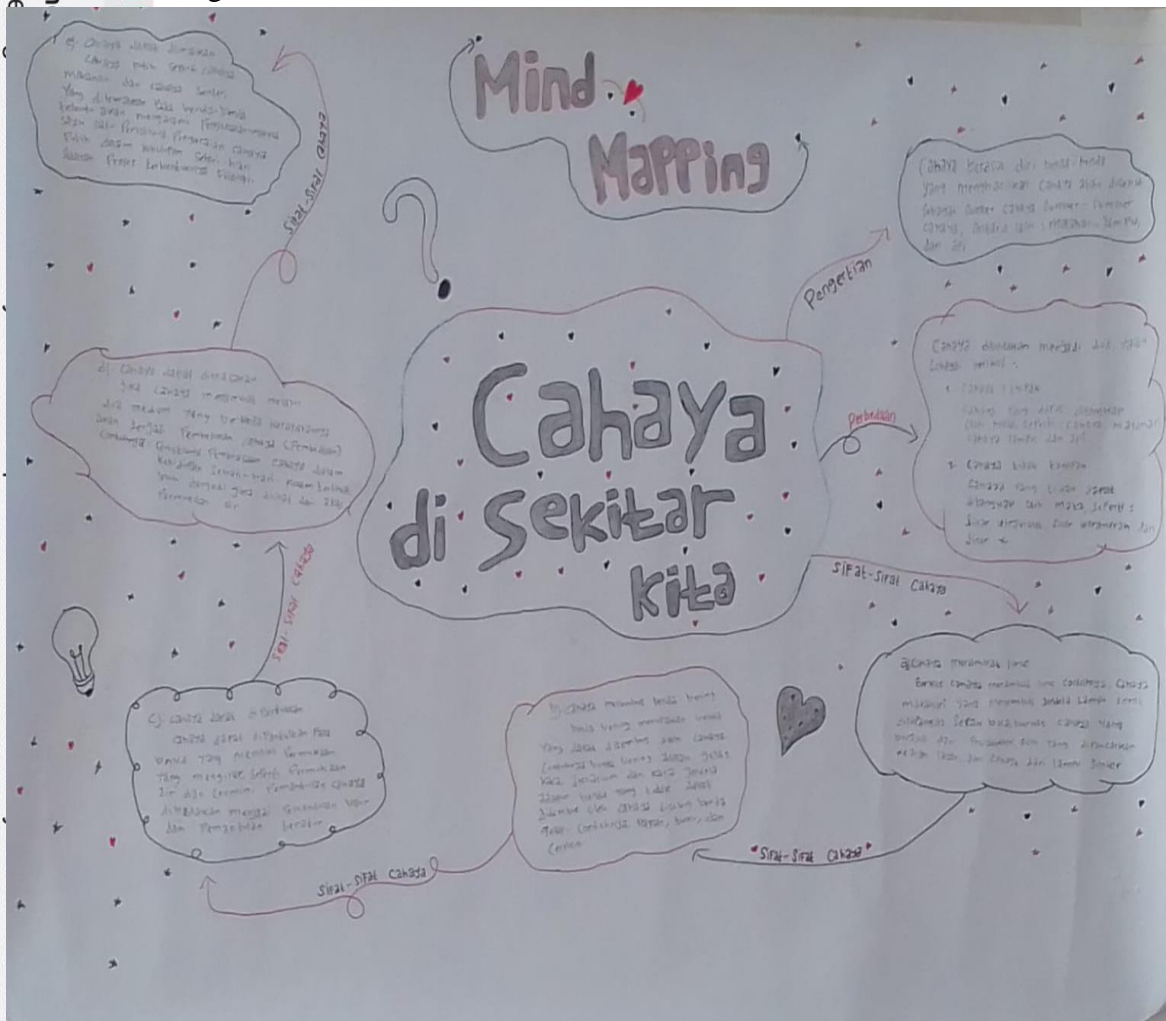 Mind
Mapping
Cahaya
di Sekitar
kita
Pengertian
Cahaya berasal dari benda-benda
yang menghasilkan cahaya akan disebut
Sebagai Sumber cahaya Sumber-Sumber
cahaya, antara lain: matahari, lampu,
dan api
Perbedaan
Cahaya dibedakan menjadi dua, yaitu
1. Cahaya tampak
Cahaya yang dapat ditangkap
oleh mata, seperti: cahaya matahari
cahaya lampu dan api
2. Cahaya tidak tampak
Cahaya yang tidak dapat
ditangkap oleh mata, seperti:
dan
Sinar x
Sifat-Sifat Cahaya
a) Cahaya merambat lurus
Berkas cahaya merambat lurus Contohnya, Cahaya
matahari yang menembus jendela
cahaya yang
dan cahaya dari lampu Senter
"Sifat-Sifat Cahaya"
b) Cahaya menembus benda bening
benda bening merupakan benda
Yang dapat ditembus oleh cahaya
Contohnya benda bening adalah gelas
kaca, dan kaca jendela
adapun benda yang tidak dapat
ditembus oleh cahaya disebut benda
gelap. Contohnya papan, buku, dan
Sifat-Sifat Cahaya
C) Cahaya dapat dipantulkan
Cahaya dapat dipantulkan Pada
benda yang memiliki Permukaan
Yang mengkilat Seperti Permukaan
air dan Cermin. Pemantulan cahaya
dibedakan menjadi Pemantulan baur
dan Pemantulan teratur
Sifat-Sifat Cahaya
d) Cahaya dapat dibiaskan
Jika cahaya merambat melalui
dua medium yang berbeda kerapatannya
akan terjadi Pembiasan cahaya (Pembelokan)
Contohnya: Pembiasan cahaya dalam
kehidupan Sehari-hari. kolam
jika dilihat dari atas
Permukaan air
Sifat-Sifat Cahaya
e) Cahaya dapat diuraikan
Cahaya putih Seperti cahaya
matahari dan cahaya Senter
Yang pada benda-benda
akan mengalami
Salah satu Peristiwa Penguraian cahaya
Putih dalam kehidupan Sehari-hari
adalah Proses terbentuknya Pelangi.